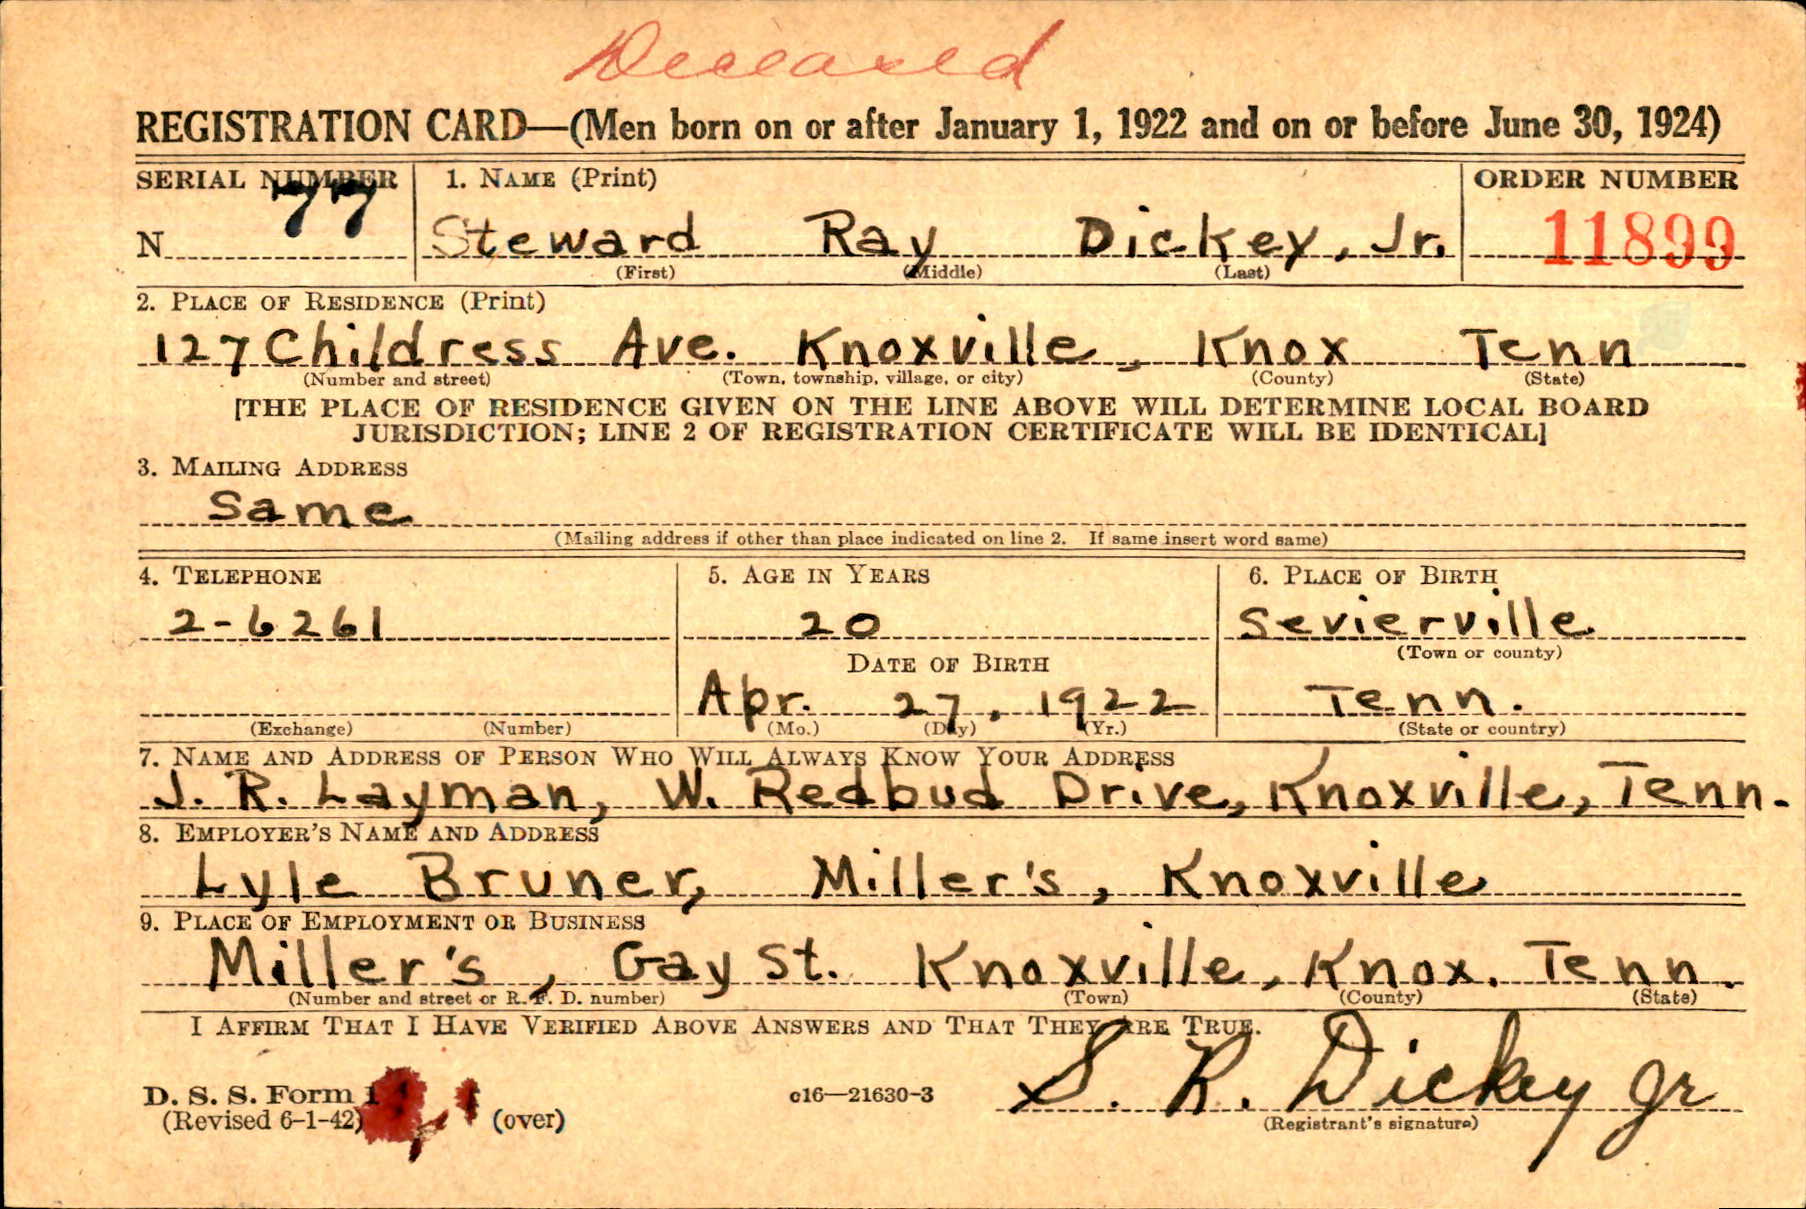 Deceased
REGISTRATION CARD—(Men born on or after January 1, 1922 and on or before June 30, 1924)
SERIAL NUMBER 1. NAME (Print) ORDER NUMBER
N 77 Steward Ray Dickey, Jr. 11899
(First) (Middle) (Last)
2. PLACE OF RESIDENCE (Print)
127 Childress Ave. Knoxville, Knox Tenn
(Number and street) (Town, township, village, or city) (County) (State)
[THE PLACE OF RESIDENCE GIVEN ON THE LINE ABOVE WILL DETERMINE LOCAL BOARD
JURISDICTION; LINE 2 OF REGISTRATION CERTIFICATE WILL BE IDENTICAL]
3. MAILING ADDRESS
Same
(Mailing address if other than place indicated on line 2. If same insert word same)
4. TELEPHONE 5. AGE IN YEARS 6. PLACE OF BIRTH
2-6261 20 Sevierville
(Town or county)
DATE OF BIRTH
Apr. 27, 1922 Tenn.
(Exchange) (Number) (Mo.) (Day) (Yr.) (State or country)
7. NAME AND ADDRESS OF PERSON WHO WILL ALWAYS KNOW YOUR ADDRESS
J. R. Layman, W. Redbud Drive, Knoxville, Tenn.
8. EMPLOYER'S NAME AND ADDRESS
Lyle Bruner, Miller's, Knoxville
9. PLACE OF EMPLOYMENT OR BUSINESS
Miller's, Gay St. Knoxville, Knox. Tenn.
(Number and street or R. F. D. number) (Town) (County) (State)
I AFFIRM THAT I HAVE VERIFIED ABOVE ANSWERS AND THAT THEY ARE TRUE.
D. S. S. Form 1 c16—21630-3 S. R. Dickey Jr
(Revised 6-1-42) (over) (Registrant's signature)